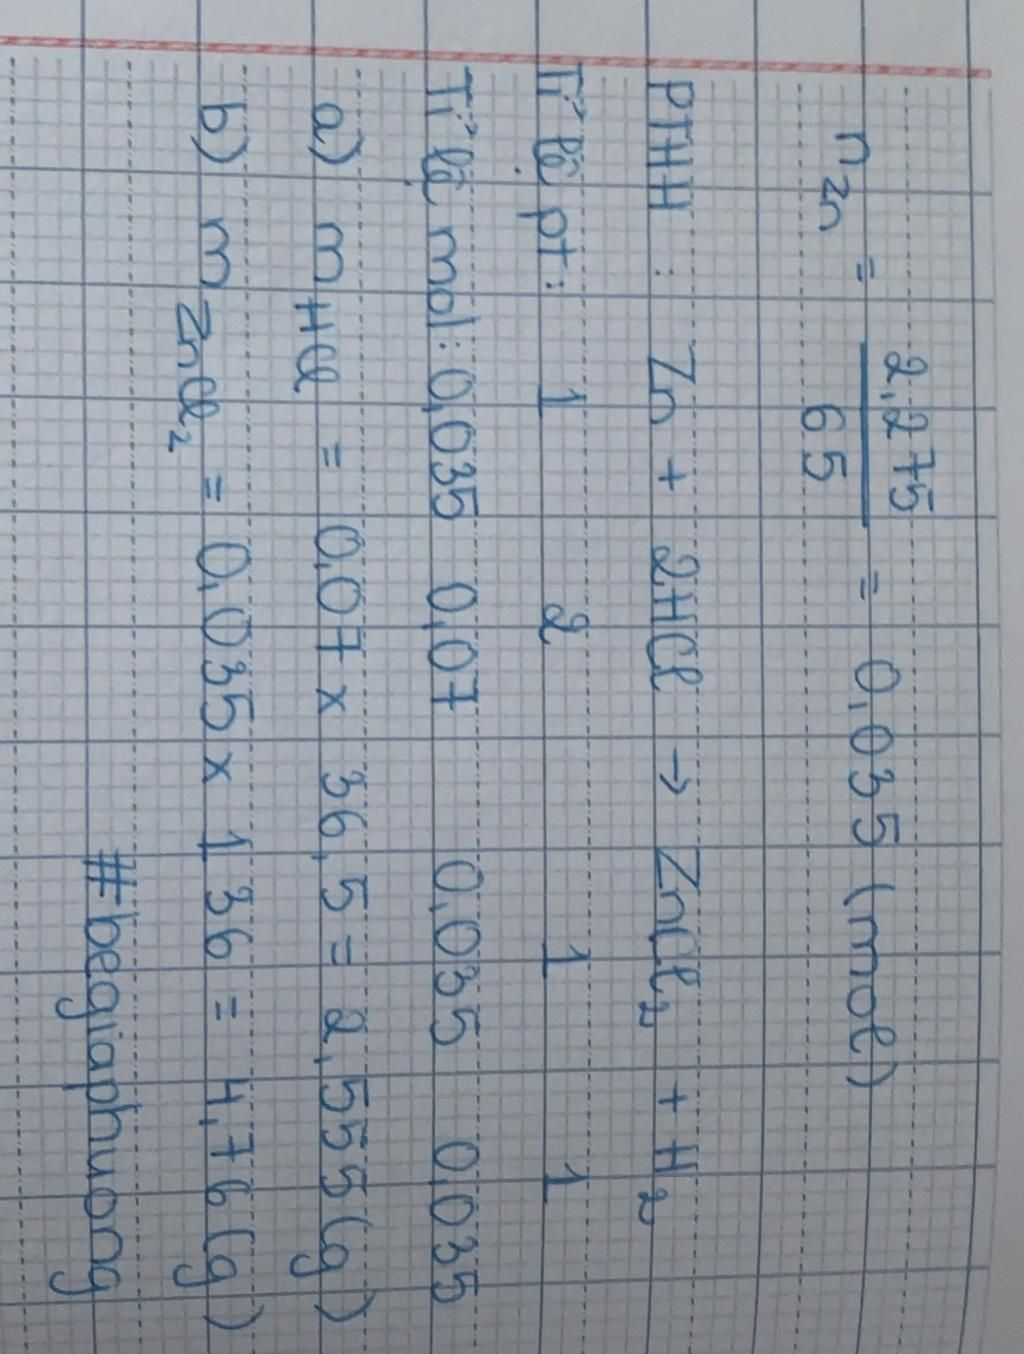 n Zn = 2,275 / 65 = 0,035 (mol)
PTHH : Zn + 2HCl → ZnCl₂ + H₂
Tỉ lệ pt : 1 2 1 1
Tỉ lệ mol : 0,035 0,07 0,035 0,035
a) m HCl = 0,07 x 36,5 = 2,555 (g)
b) m ZnCl₂ = 0,035 x 136 = 4,76 (g)
#begiaphuong